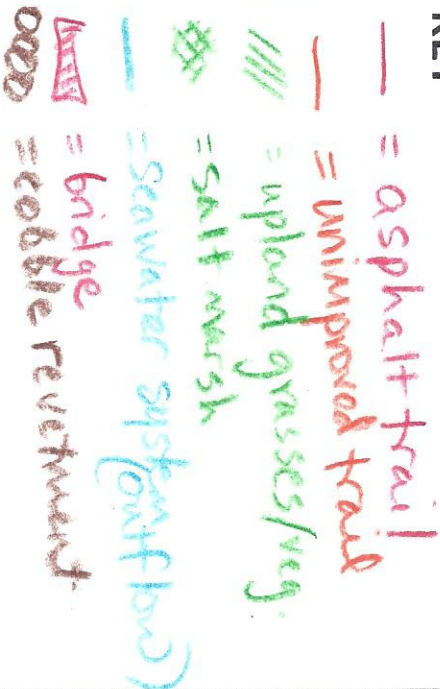 KEY
= asphalt trail
= unimproved trail
= upland grasses/veg.
= salt marsh
= seawater system
(outflow)
= bridge
= cobble revetment